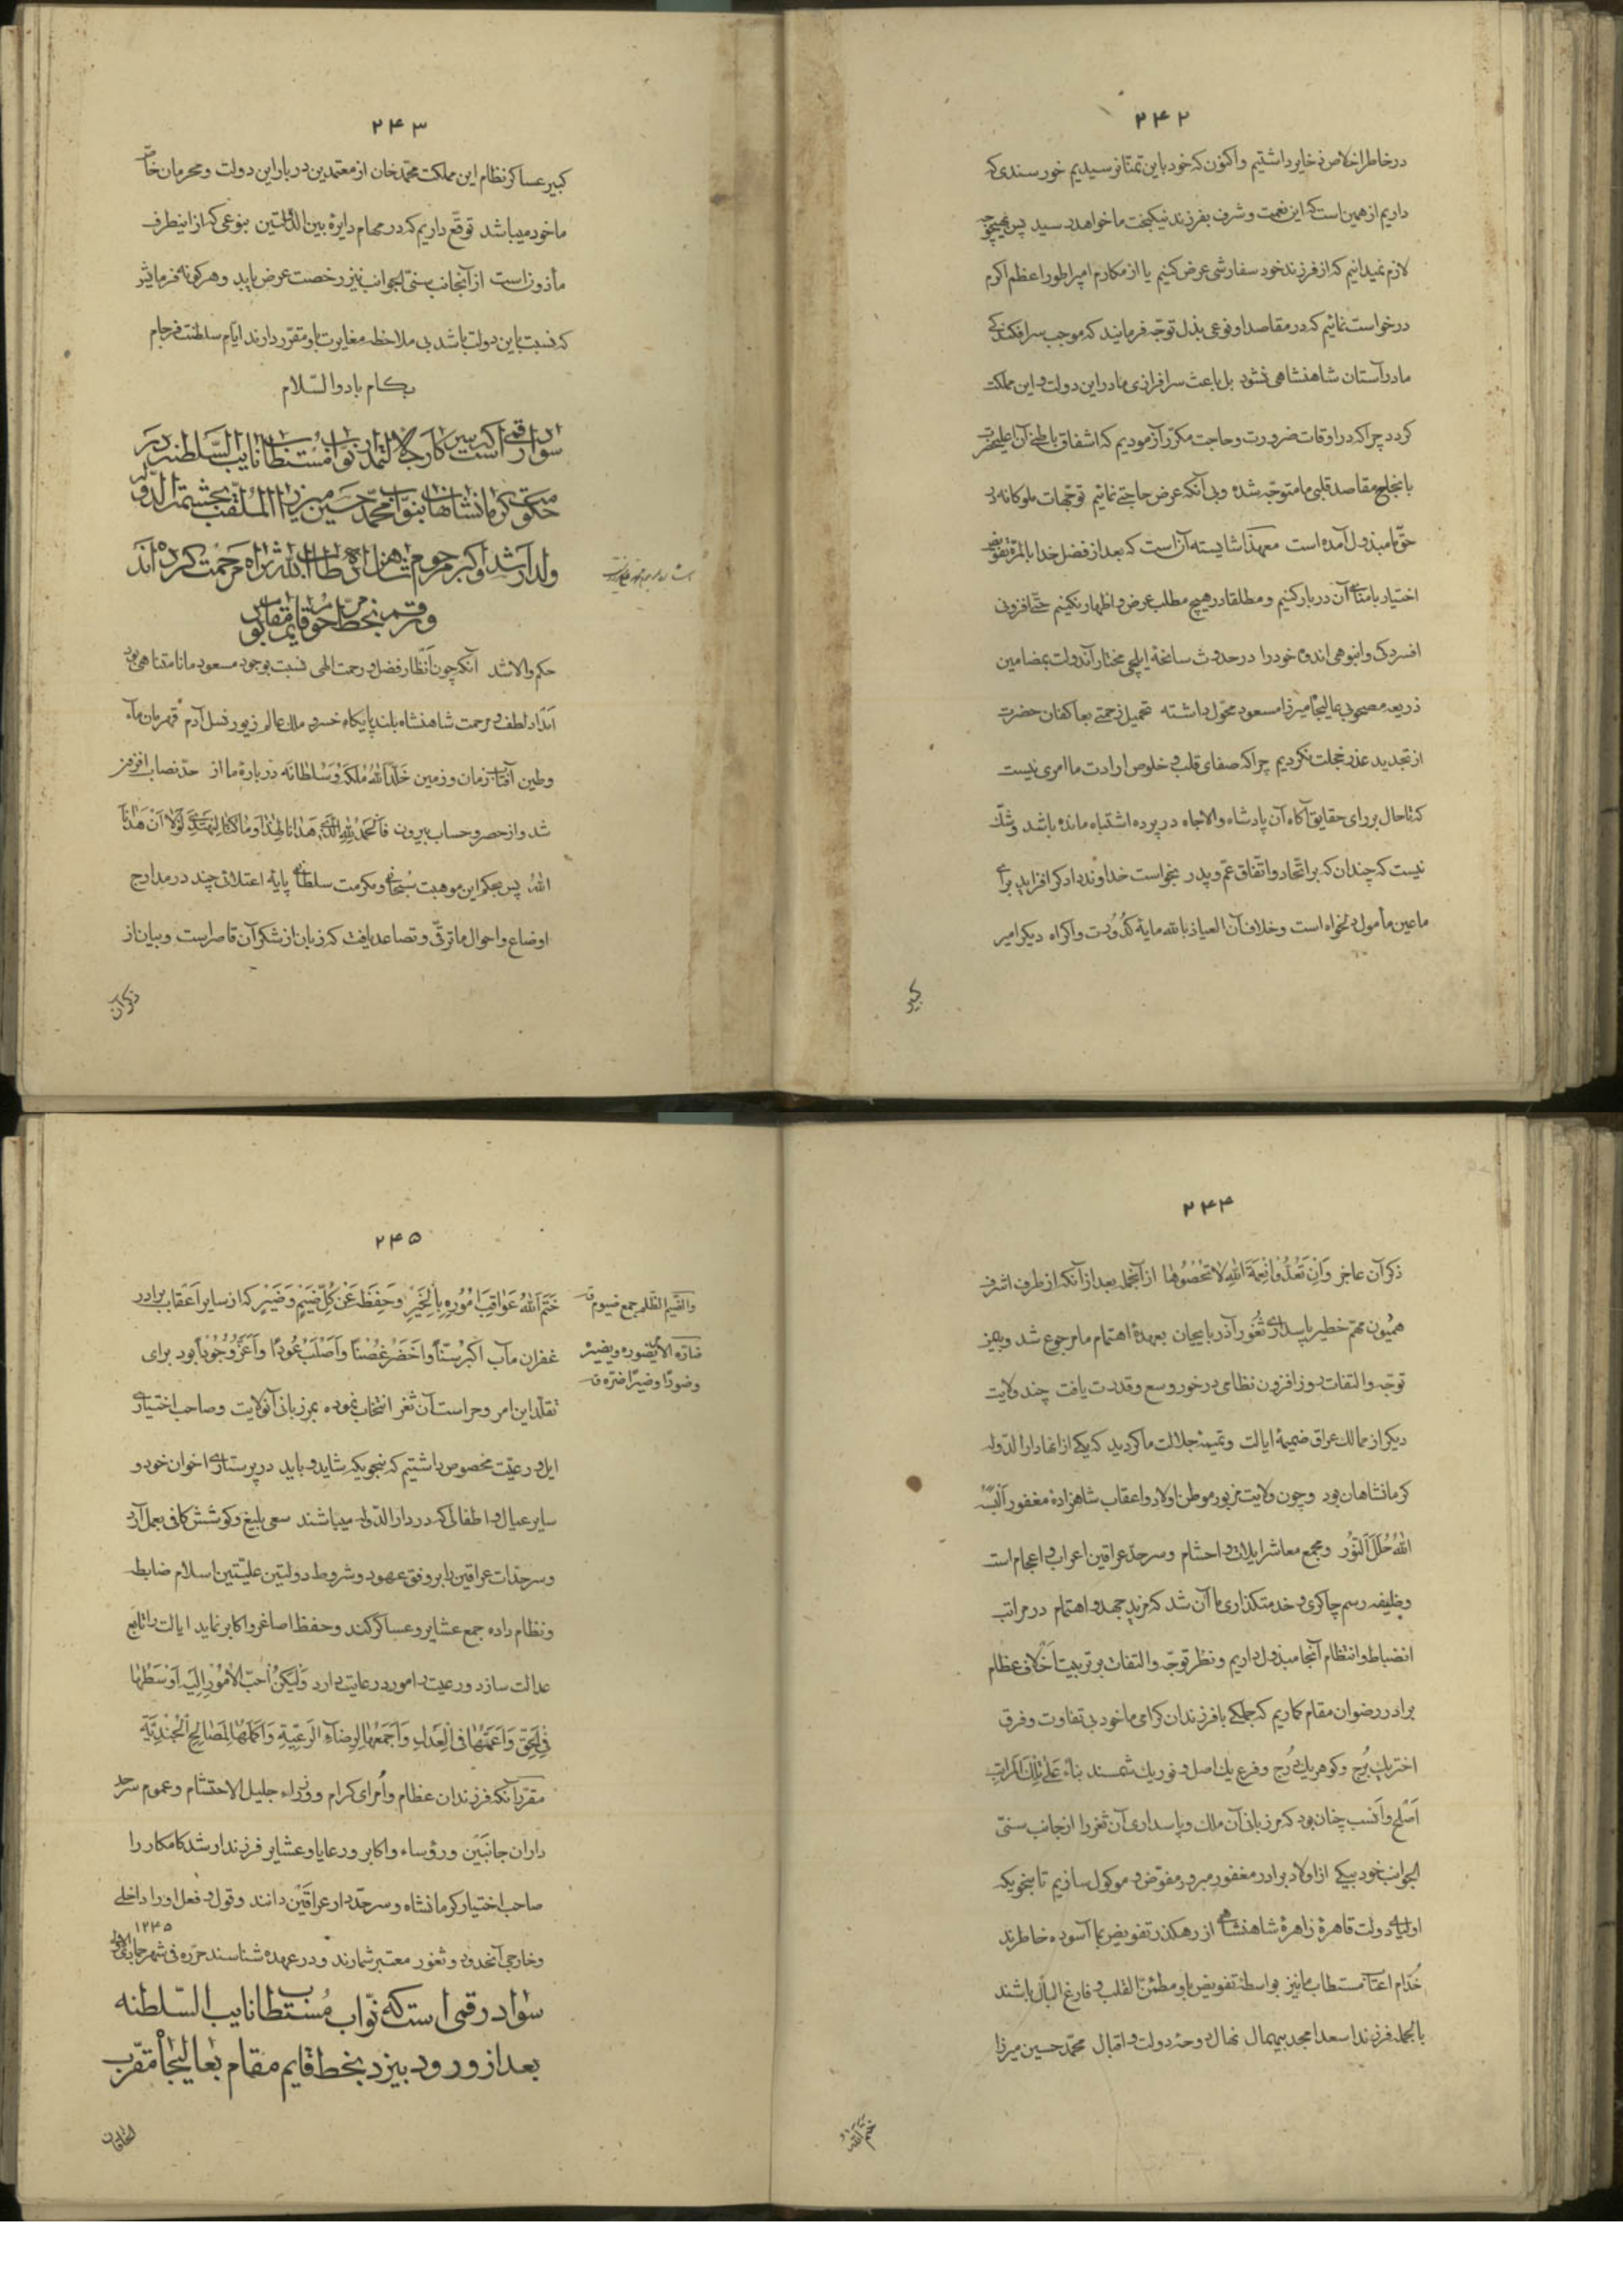 ۲۴۲
در خاطر اخلاص ذخایر داشتیم و اکنون که خود باین تمنا نرسیدیم خورسندی که
داریم از همین است که این نعمت و شرف بفرزند نیکبخت ما خواهد رسید پس بهیچوجه
لازم نمیدانیم که از فرزند خود سفارشی عرض کنیم یا از مکارم امپراطور اعظم اکرم
درخواست نمائیم که در مقاصد او نوعی بذل توجّه فرمایند که موجب سرافکندگی
ما در آستان شاهنشاهی نشود بل باعث سرافرازی ما در این دولت و این مملکت
گردد چرا که در اوقات ضرورت و حاجت مکرّر آزمودیم که اشفاق باطنی آن اعلیحضرت
بانجاح مقاصد قلبی ما متوجّه شده و بی آنکه عرض حاجتی نمائیم توجّهات ملوکانه در
حقّ ما مبذول آمده است معهذا شایسته آنست که بعد از فضل خدا بالمرّة تفویض
اختیار بامنای آن دربار کنیم و مطلقا در هیچ مطلب عرض و اظهار نکنیم حتّی افزونی
افسردگی و انبوهی اندوه خود را در حدوث سانحهٔ ایلچی مختار آندولت بمضامین
ذریعه مصحوبی عالیجاه میرزا مسعود محوّل داشته تحمیل زحمتی بعاکفان حضرت
از تجدید عذر خجلت نکردیم چرا که صفای قلب و خلوص ارادت ما امری نیست
که تا حال بر رای حقایق آگاه آن پادشاه والاجاه در پرده اشتباه مانده باشد و شکّ
نیست که چندان که بر اتّحاد و اتّفاق عمّ و پدر بخواست خداوند دادگر افزاید برای
ما عین مأمول و دلخواه است و خلاف آن العیاذ بالله مایهٔ کدُورت و اکراه دیگر امیر
کبیر
۲۴۳
کبیر عساکر نظام این مملکت محمّد خان از معتمدین دربار این دولت و محرمان خاصّ
ما خود میباشد توقّع داریم که در مهام دایرهٔ بین الدّولتین بنوعی که از اینطرف
مأذون است از آنجانب سنیّ الجوانب نیز رخصت عرض یابد و هر گونه فرمایش
که نسبت باین دولت باشد بی ملاحظه مغایرت باو مقرّر دارند ایّام سلطنت فرجام
بکام باد والسّلام
سواد رقمی است که سرکار جلالتمدار نواب مستطاب نایب السّلطنه در
حکومت کرمانشاهان بنوّاب محمّد حسین میرزا الملقّب بحشمة الدّوله
ولد ارشد و اکبر مرحوم شاهزاده طاب الله ثراه مرحمت کرده‌اند
و رقم بخط مرحوم قایم مقام بود
حکم والا شد آنکه چون انظار فضل و رحمت الهی نسبت بوجود مسعود ما نامتناهی بود
امداد لطف و مرحمت شاهنشاه بلند پایگاه خسرو مالک عالم زیور نسل آدم قهرمان ماء
وطین آفتاب زمان و زمین خَلَّدَ اللهُ مُلکَهُ وَ سُلطانَه در بارهٔ ما از حدّ نصاب افزونتر
شد و از حصر و حساب بیرون فالحَمدُ لِلهِ الَّذی هَدانا لِهٰذا وَ ما کُنّا لِنَهتَدِیَ لَولا اَن هَدانا
اللهُ پس بحکم این موهبت سُبحانی و مکرمت سلطانی پایهٔ اعتلائی چند در مدارج
اوضاع و احوال ما ترقّی و تصاعد یافت که زبان از شکر آن قاصر است و بیان از
ذکر آن
۲۴۴
ذکر آن عاجز وَاِن تَعُدُّوا نِعمَةَ اللهِ لا تُحصُوها از آنجمله بعد از آنکه از طرف اشرف
همیون مهمّ خطیر پاسداری ثُغور آذربایجان بعهدهٔ اهتمام ما مرجوع شد و بیمن
توجّه و التفات روز افزون نظامی در خور وسع و قدرت یافت چند ولایت
دیگر از ممالک عراق ضمیمهٔ ایالت و تمیمهٔ جلالت ما گردید که یکی از انها دارالدّوله
کرمانشاهان بود و چون ولایت مزبور موطن اولاد و اعقاب شاهزادهٔ مغفور اَلبَسَهُ
اللهُ حُلَلَ النّور و مجمع معاشر ایلات و احشام و سرحدّ عراقین اعراب و اعجام است
وظیفه رسم چاکری و خدمتگذاری ما آن شد که مزید جهد و اهتمام در مراتب
انضباط و انتظام آنجا مبذول داریم و نظر توجّه و التفات بر تربیت اخلاف عظام
برادر رضوان مقام گماریم که جملگی با فرزندان گرامی ما خود بی تفاوت و فرق
اختر یک بُرج و گوهر یک دُرج و فرع یک اصل و نور یک شمسند بناءً عَلی تِلکَ المَراتِبِ
اَصلح و اَنسب چنان بود که مرزبانی آن ملک و پاسداری آن ثغر را از جانب سنیّ
الجوانب خود بیکی از اولاد برادر مغفور مبرور مفوّض و موکول سازیم تا بنحویکه
اولیای دولت قاهرهٔ زاهرهٔ شاهنشاهی از رهگذر تفویض بما آسوده خاطرند
خدّام اعتاب مستطاب ما نیز بواسطهٔ تفویض باو مطمئنّ القلب و فارغ البال باشند
بالجمله فرزند اسعد امجد بیهمال نهال دوحهٔ دولت و اقبال محمّد حسین میرزا
ختم الله
۲۴۵
خَتَمَ اللهُ عَواقِبَ اُمُورِهِ بِالخَیرِ وَ حَفِظَهُ عَن کُلِّ ضَیمٍ وَ ضَیرٍ که از سایر اَعقاب برادر
غفران مآب اَکبَرُ سِنّاً وَ اَخضَرُ غُصناً وَ اَصلَبُ عُوداً وَ اَعَزُّ وُجُوداً بود برای
تقلّد این امر و حراست آن ثغر انتخاب نموده بمرزبانی آنولایت و صاحب اختیاری
ایل و رعیّت مخصوص داشتیم که بنحویکه شاید و باید در پرستاری اخوان خود و
سایر عیال و اطفالی که در دار الدّوله میباشند سعی بلیغ و کوشش کافی بعمل آرد
و سرحدّات عراقین را بر وفق عهود و شروط دولتین علیّتین اسلام ضابطه
و نظام داده جمع عشایر و عساکر کند و حفظ اصاغر و اکابر نماید ایالت را تابع
عدالت سازد و رعیت را مورد رعایت دارد وَلیَکُن اَحَبُّ الاُمُورِ اِلَیهِ اَوسَطُها
فِی الحَقِّ وَ اَعَمَّها فِی العَدلِ وَ اَجمَعَها لِرِضاءِ الرَّعِیَّةِ وَ اَکمَلَها لِمَصالِحِ الجُندِیَّةِ
مقرّر آنکه فرزندان عظام و اُمرای کرام و وزراء جلیل الاحتشام و عموم سرحد
داران جانبَین و رؤساء و اکابر و رعایا و عشایر فرزند ارشد کامکار را
صاحب اختیار کرمانشاه و سرحدّدار عراقَین دانند و قول و فعل او را داخلی
و خارجی آنحدود و ثغور معتبر شمارند و در عهده شناسند حرّره فی شهر جمادی الاولی ۱۲۴۵
سواد رقمی است که نوّاب مُستطاب نایب السّلطنه
بعد از ورود بیزد بخط قایم مقام بعالیجاه مقرّب
الخاقان
والضّیم الظّلم جمع ضیوم ق
ضارّه الامر یضوره و یضیره
ضورًا و ضیرًا ضرّه ق